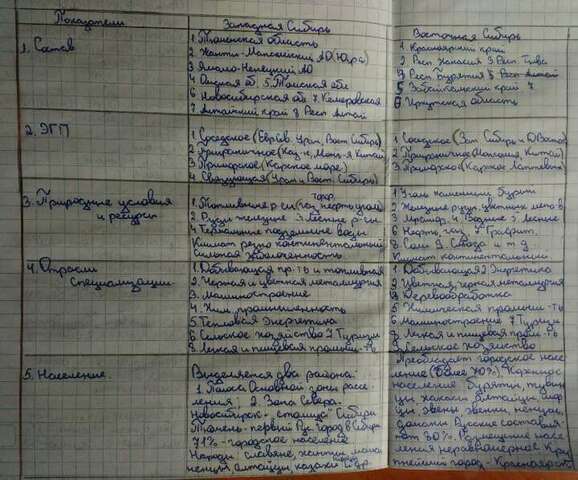 Показатели
Западная Сибирь
Восточная Сибирь
1. Состав
1. Тюменская область
2. Ханти-Мансийский АО (Югра)
3. Ямало-Ненецкий АО
4 Омская об. 5. Томская обл
6 Новосибирская обл 7. Кемеровская
7. Алтайский край 8 Респ Алтай
1. Красноярский край
2 Респ Хакасия 3 Респ Тыва
Респ Бурятия
5 Забайкальский край
Иркутская область
2. ЭГП
1. Соседское (Евр Сев. Урал, Вост Сибирь)
2 Приграничное (Каз-н, Монг-я Китай)
3 Приморское (Карское море)
4. Связующая (Урал и Вост. Сибирь)
1. Соседское (Зап. Сибирь и Д Восток)
2 Приграничное (Монголия, Китай)
3 Приморско (Карское Лаптевых)
3. Природные условия
и ресурсы
1. Топливные р-сы (газ, нефть, уголь)
торф
2 Руды железные 3 Лесные р-сы
4 Термальные подземные воды
Климат резко континентальный
Сильная заболоченность
1 Угли каменный, бурый
2 Железные руды, цветных
4. Водные 5 Лесные
6 Нефть, газ, 7 Графит.
8 Соли 9 Слюда и т д
Климат континентальный
4. Отрасли
специализации
1. Добывающая пр-ть и топливная
2. Черная и цветная металлургия
3. Машиностроение
4. Хим. промышленность
5. Тепловая Энергетика
6 Сельское хозяйство 7 Туризм
8. Легкая и пищевая промышл-ть
1. Добывающая 2 Энергетика
2 Цветная, черная металлургия
Деревообработка
5. Химическая промышл-ть
6 Машиностроение 7 Туризм
8 Легкая и пищевая
Сельское хозяйство
5. Население
Выделяется два района:
1. Полоса Основной зоны рассе-
ления; 2. Зона Севера.
Новосибирск - „столица" Сибири
Тюмень - первый Рус. город в Сибири
71% - городское население
Народы: славяне, ханты, манси
ненцы, алтайцы, казахи и др.
Преобладает городское насе-
ление (Более 70%) Коренное
население буряты, тувин
цы хакасы
эвены эвенки, ненцы,
долганы Русские составля
ют 80%. Размещение насе
ления неравномерное Кру
пнейший город - Красноярск